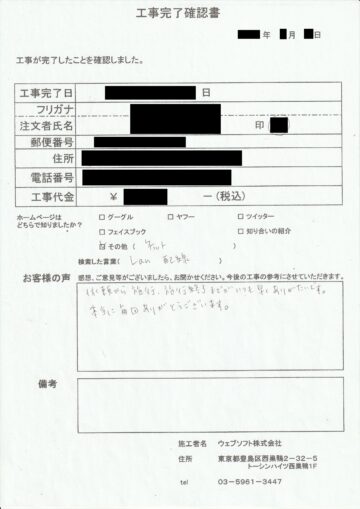 工事完了確認書
年 月 日
工事が完了したことを確認しました。
工事完了日 日
フリガナ
注文者氏名 印
郵便番号
住所
電話番号
工事代金 ¥ ー(税込)
ホームページは
どちらで知りましたか?
□ グーグル □ ヤフー □ ツイッター
□ フェイスブック □ 知り合いの紹介
☑ その他 ( ネット )
検索した言葉( Lan 配線 )
お客様の声 感想、ご意見等がございましたら、お聞かせください。今後の工事の参考にさせていただきます。
依頼から施行、施行終了までがいつも早くありがたいです。
本当に毎回ありがとうございます。
備考
施工者名 ウェブソフト株式会社
住所 東京都豊島区西巣鴨2-32-5
トーシンハイツ西巣鴨1F
tel 03-5961-3447